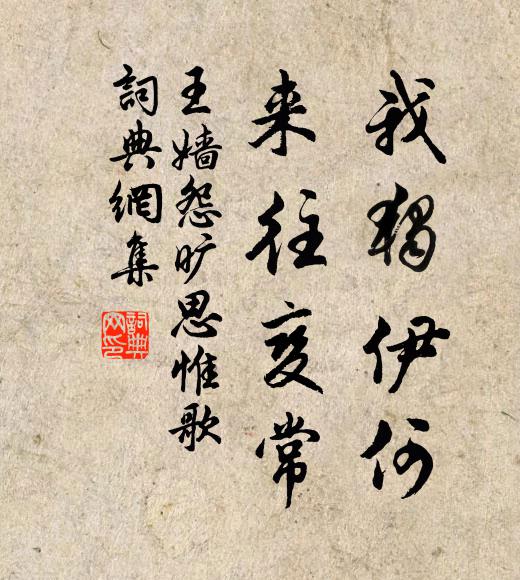 我獨伊何
来往变常
王嫱怨旷思惟歌
詞典網集
詞典網印